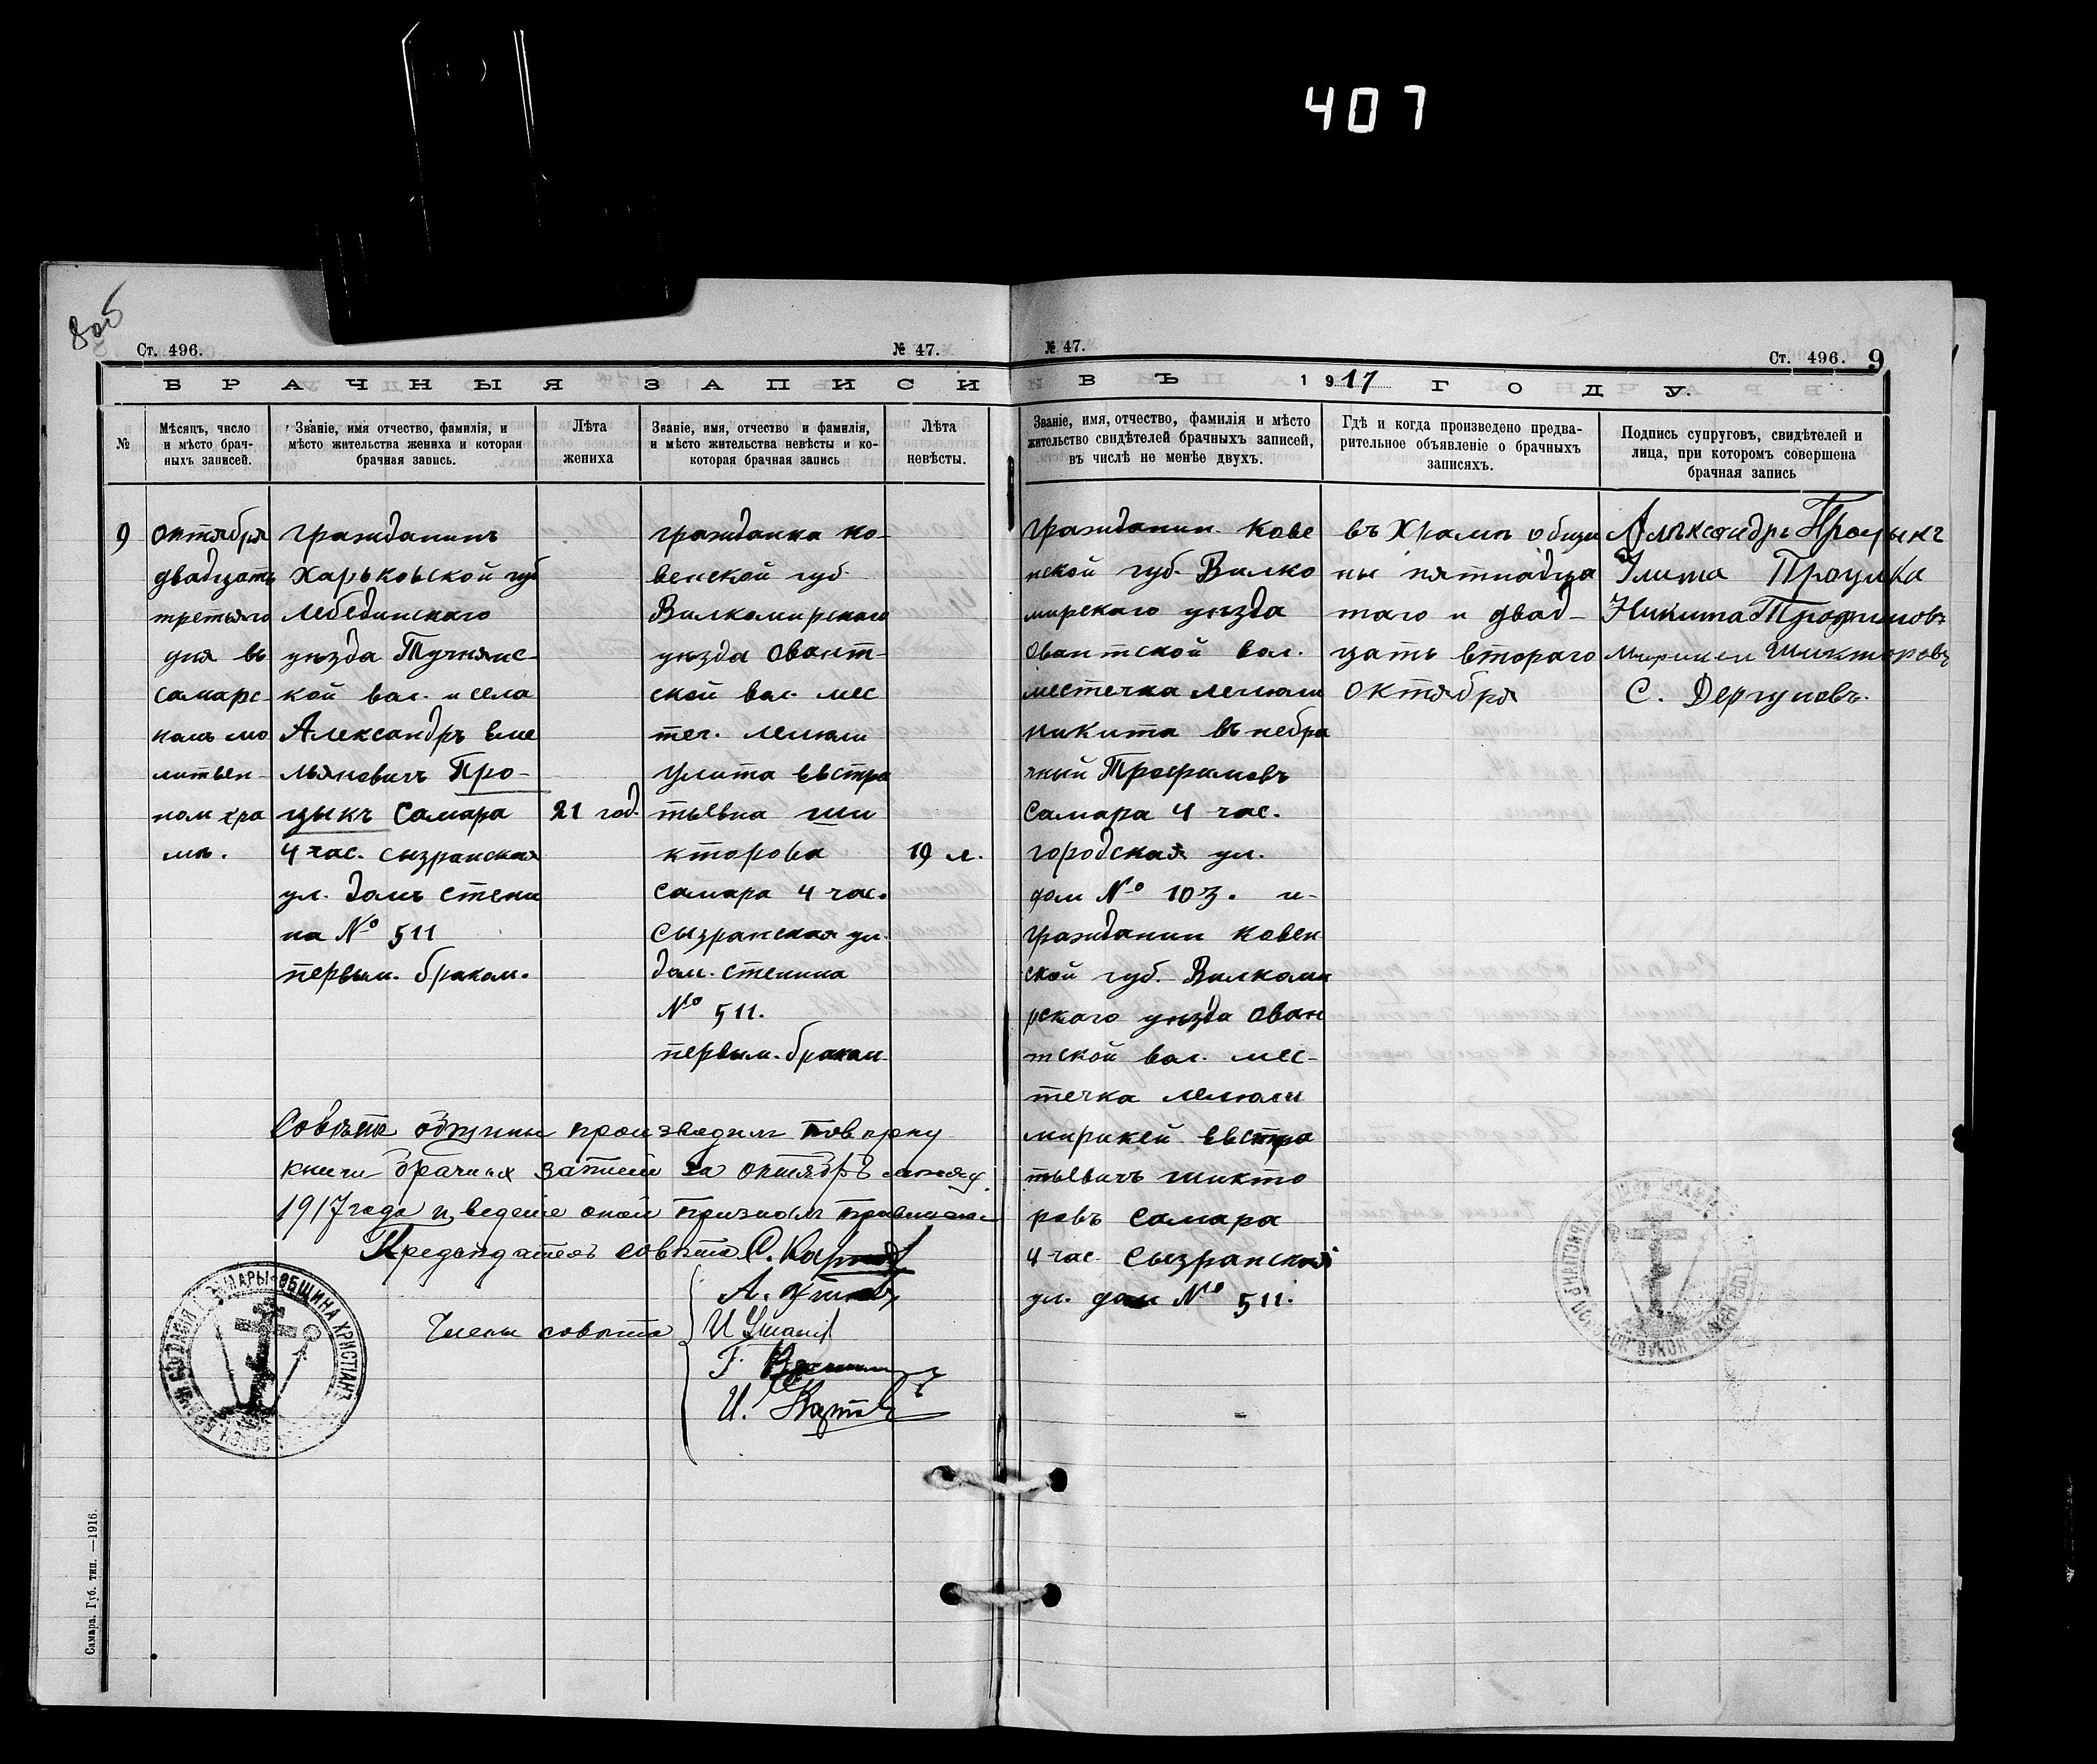 407
Ст. 496.
№ 47.
№ 47.
Ст. 496.
9
БРАЧНЫЯ ЗАПИСИ
ВЪ 1917 ГОДУ.
№
Мѣсяцъ, число
и мѣсто брач-
ныхъ записей.
Званіе, имя отчество, фамилія, и
мѣсто жительства жениха и которая
брачная запись.
Лѣта
жениха
Званіе, имя, отчество и фамилія,
и мѣсто жительства невѣсты и ко-
которая брачная запись
Лѣта
невѣсты.
Званіе, имя, отчество, фамилія и мѣсто
жительство свидѣтелей брачныхъ записей,
въ числѣ не менѣе двухъ.
Гдѣ и когда произведено предва-
рительное объявленіе о брачныхъ
записяхъ.
Подпись супруговъ, свидѣтелей и
лица, при которомъ совершена
брачная запись
9
октября
двадцать
третьяго
дня въ
самарс
комъ мо
литвен-
ном хра
мѣ.
гражданинъ
Харьковской губ
лебединскаго
уѣзда Тучнянс-
кой вол. и села
Александръ Еме
льяновичъ Про-
цыкъ Самара
4 час. сызранская
ул. домъ стени
на № 511
первым. браком.
21 год.
гражданка ко-
венской губ.
Вилкомирскаго
уѣзда Овант-
ской вол. мес
теч. лелюли
Улита Евстра
тьевна ши
кторова
самара 4 час.
Сызранская ул.
дом. стенина
№ 511.
первым. браком
19 л.
гражданин Кове
нской губ. Вилко
мирскаго уѣзда
Овантской вол.
местечка лелюли
никита въ небра
чный Трофимовъ
Самара 4 час.
городская ул.
дом № 103. и-
гражданин ковен
ской губ. Вилкоми
рскаго уѣзда Ован
тской вол. мес-
течка лелюли
мирикей Евстра
тьевичъ шикто
ровъ самара
4 час. Сызранской
ул. дом № 511.
въ Храмѣ общи
ны пятнадца
таго и двад-
цать втораго
октября
Александръ Процыкъ
Улита Процика
Никита Трофимовъ
Мирикеи Шикторовъ
С. Дергуновъ.
Совѣтъ общины произведши поверку
книги брачных записей за октябрь месяц
1917 года и ведение оной признал правильн
Председатель совѣта С.
Члены совѣта
А.
И
Г.
И.
Самара. Губ. тип. —1916.